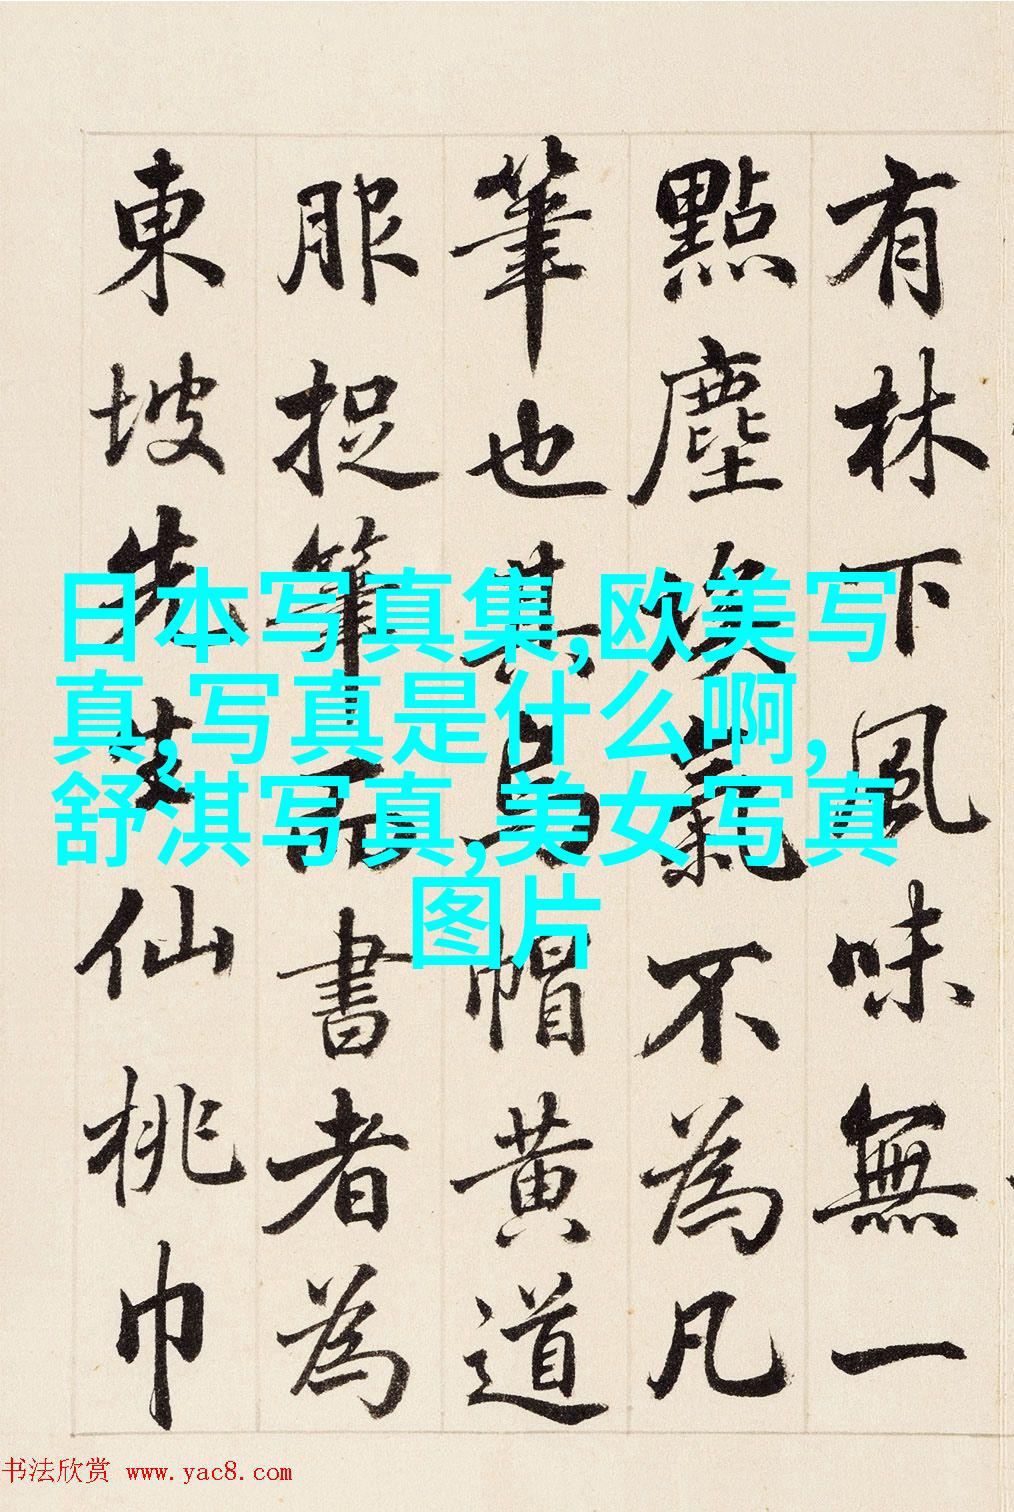 有林下風味無一
點塵埃氣不為凡
筆也其烏帽黃道
服捉筆而書者為
東坡先生仙桃巾
日本写真集,欧美写
真,写真是什么啊,
舒淇写真,美女写真
图片
书法欣赏 www.yac8.com